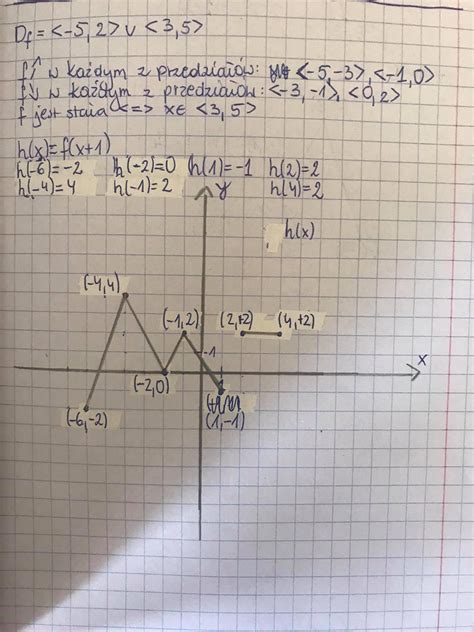 Df = <-5,2> ∪ <3,5>
f↗ w każdym z przedziałów: <-5,-3>, <-1,0>
f↘ w każdym z przedziałów: <-3,-1>, <0,2>
f jest stała <=> x∈ <3,5>
h(x)=f(x+1)
h(-6)=-2 h(-2)=0 h(1)=-1 h(2)=2
h(-4)=4 h(-1)=2 h(4)=2
y
h(x)
(-4,4)
(-1,2) (2,+2) (4,+2)
1
x
(-2,0)
(-6,-2)
(1,-1)